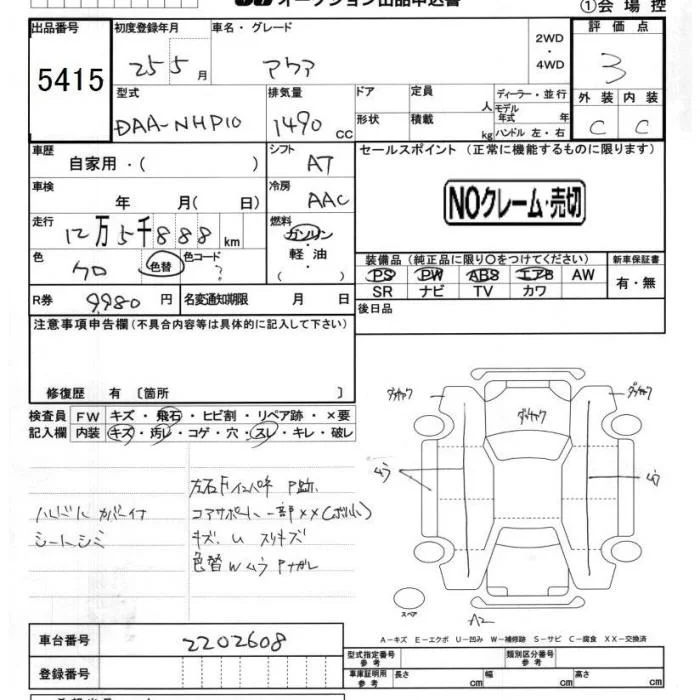 オークション出品申込書
①会場控
出品番号
5415
初度登録年月
25 5月
車名・グレード
アクア
2WD
・
4WD
評価点
3
外装 内装
C C
型式
DAA-NHP10
排気量
1490 CC
ドア
形状
定員
人
積載
kg
ディーラー・並行
モデル年式 年
ハンドル 左・右
車歴
自家用・( )
シフト
AT
セールスポイント (正常に機能するものに限ります)
NOクレーム・売切
車検
年 月( 日)
冷房
AAC
走行
12万5千888km
燃料
ガソリン
・
軽油
・( )
色
クロ
色替
色コード
?
装備品(純正品に限り○をつけてください)
PS PW ABS エアB AW
SR ナビ TV カワ
新車保証書
有・無
R券 9,980円
名変通知期限 月 日
後日品
注意事項申告欄(不具合内容等は具体的に記入して下さい)
修復歴 有〔箇所 〕
検査員記入欄
FW キズ・飛石・ヒビ割・リペア跡・×要
内装 キズ・汚レ・コゲ・穴・スレ・キレ・破レ
左右Fインパネ P跡
ハンドル カバー付
コアサポート一部××(ボルト)
シートシミ
キズ. U スリキズ
色替 W ムラ Pナガレ
ムラ
ムラ
A2
スペア
A-キズ E-エクボ U-凹み W-補修跡 S-サビ C-腐食 XX-交換済
車台番号
2202608
登録番号
型式指定番号
参考
類別区分番号
参考
車庫証明用
参考
長さ cm
幅 cm
高さ cm